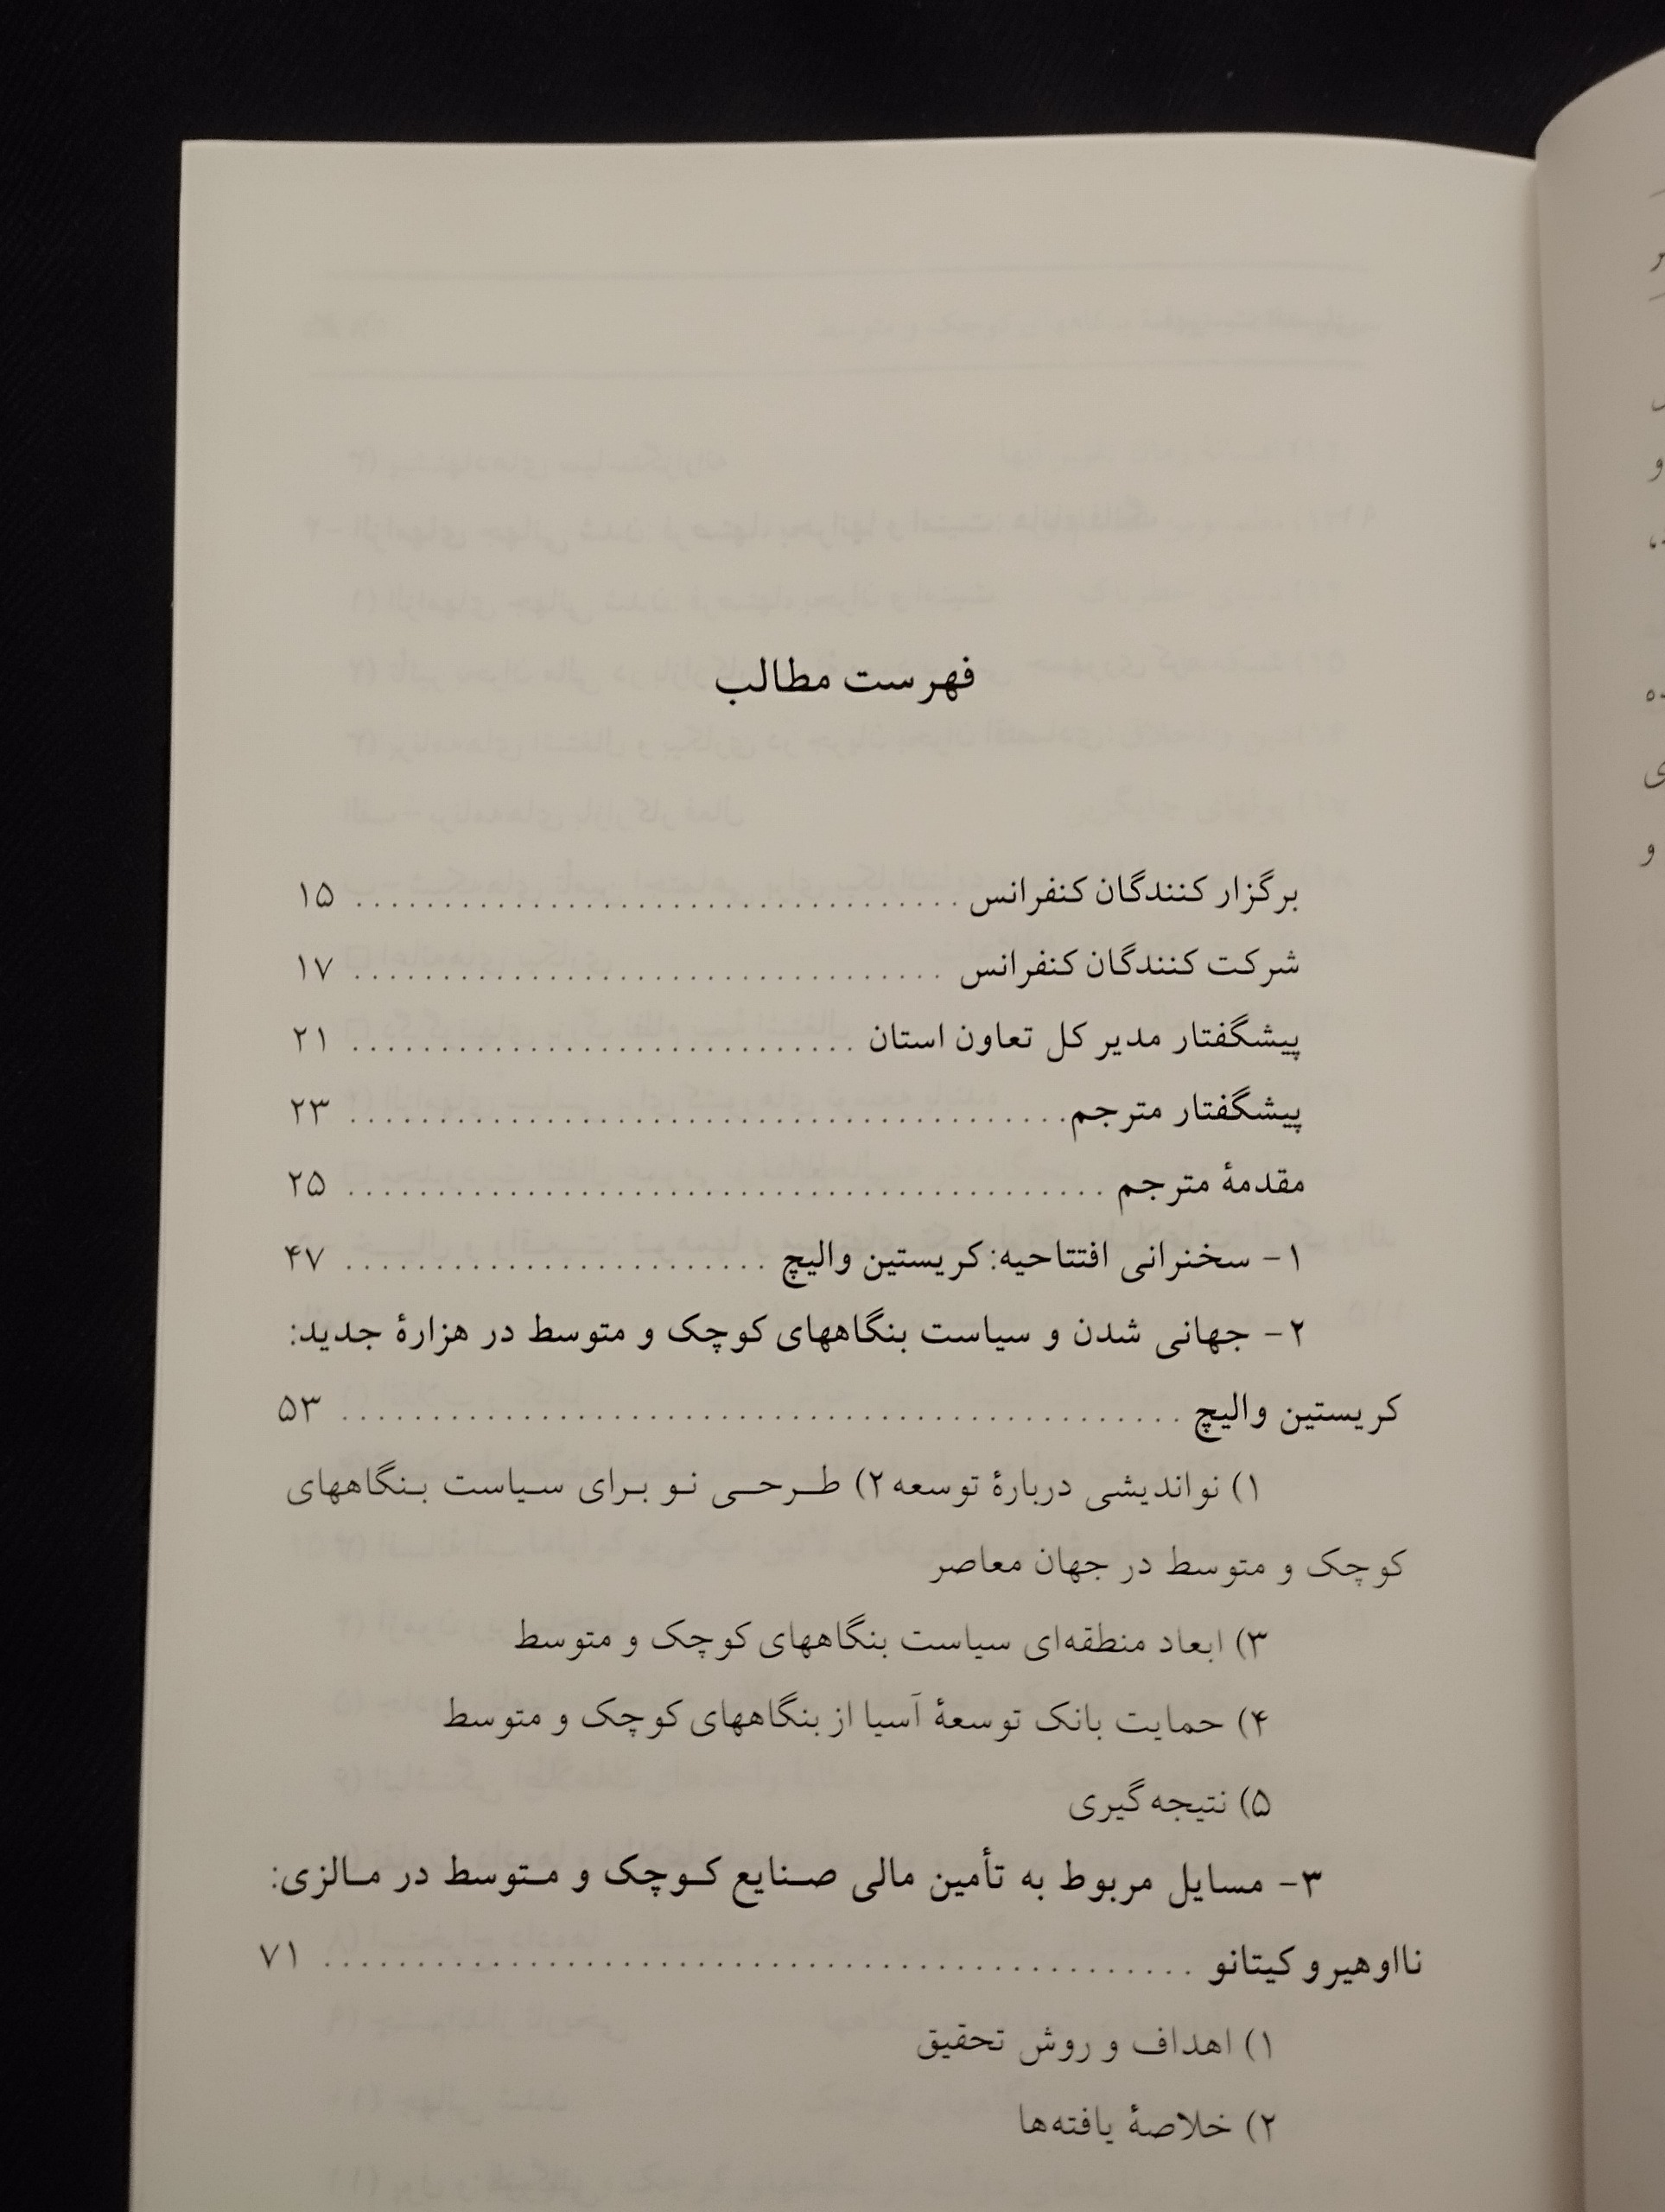 فهرست مطالب
برگزار کنندگان کنفرانس ........................................ ۱۵
شرکت کنندگان کنفرانس ........................................ ۱۷
پیشگفتار مدیر کل تعاون استان ................................ ۲۱
پیشگفتار مترجم ................................................ ۲۳
مقدمهٔ مترجم .................................................. ۲۵
۱- سخنرانی افتتاحیه: کریستین والیچ ........................ ۴۷
۲- جهانی شدن و سیاست بنگاههای کوچک و متوسط در هزارهٔ جدید:
کریستین والیچ ................................................ ۵۳
۱) نواندیشی دربارهٔ توسعه ۲) طرحی نو برای سیاست بنگاههای
کوچک و متوسط در جهان معاصر
۳) ابعاد منطقه‌ای سیاست بنگاههای کوچک و متوسط
۴) حمایت بانک توسعهٔ آسیا از بنگاههای کوچک و متوسط
۵) نتیجه‌گیری
۳- مسایل مربوط به تأمین مالی صنایع کوچک و متوسط در مالزی:
نااوهیرو کیتانو ................................................ ۷۱
۱) اهداف و روش تحقیق
۲) خلاصهٔ یافته‌ها